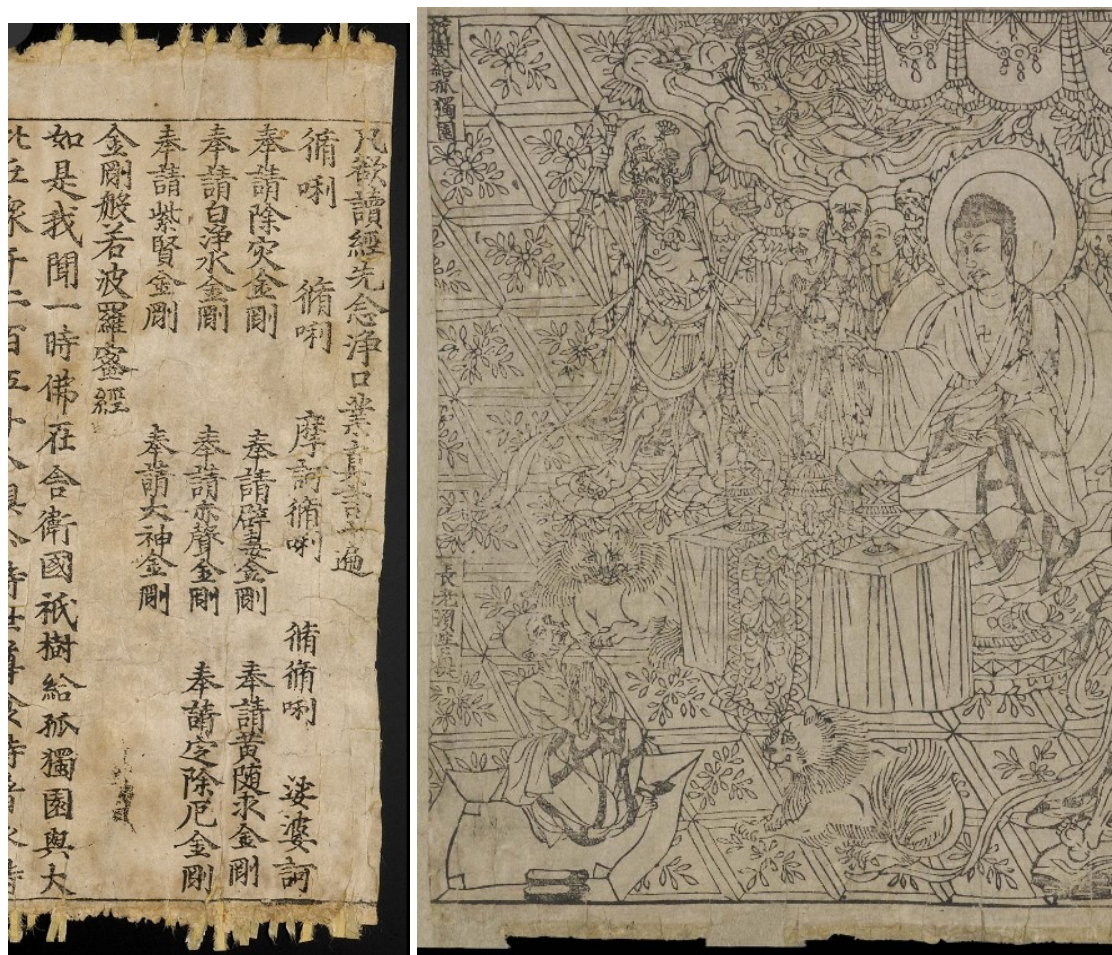 凡欲讀經先念淨口業真言一遍
脩唎 脩唎 摩訶脩唎 脩脩唎 娑婆訶
奉請除灾金剛 奉請辟毒金剛 奉請黄随求金剛
奉請白淨水金剛 奉請赤聲金剛 奉請定除厄金剛
奉請紫賢金剛 奉請大神金剛
金剛般若波羅蜜經
如是我聞一時佛在舍衛國祇樹給孤獨園與大
比丘衆千二百五十人俱尒時世尊食時
祇樹給孤獨園
長老須菩提